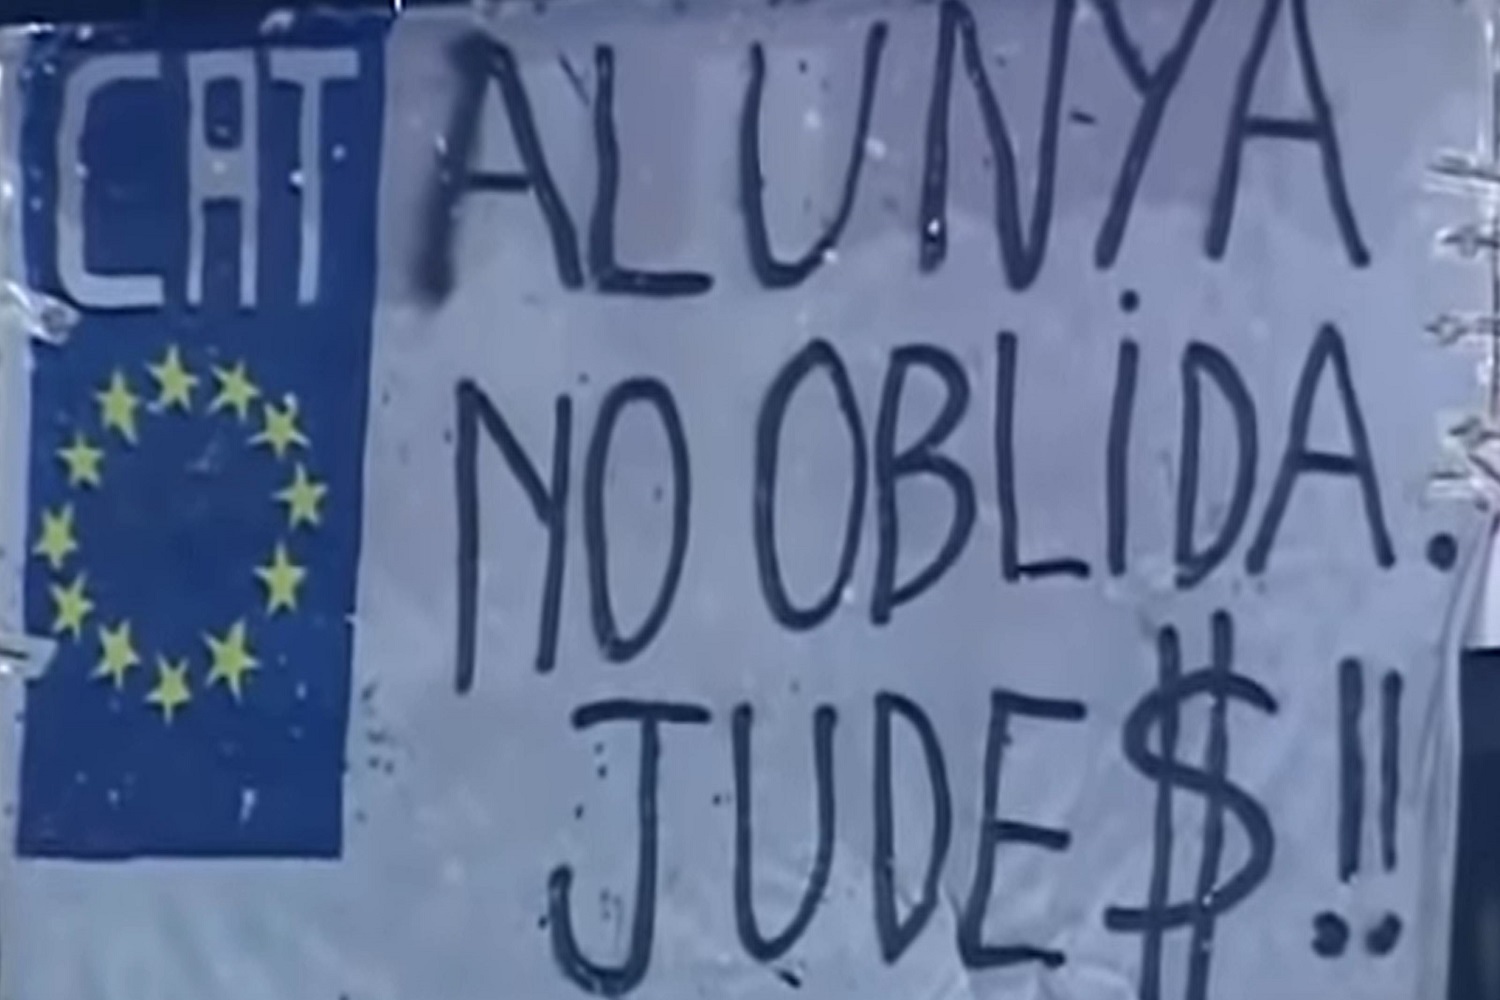 CATALUNYA
NO OBLiDA.
JUDE$!!